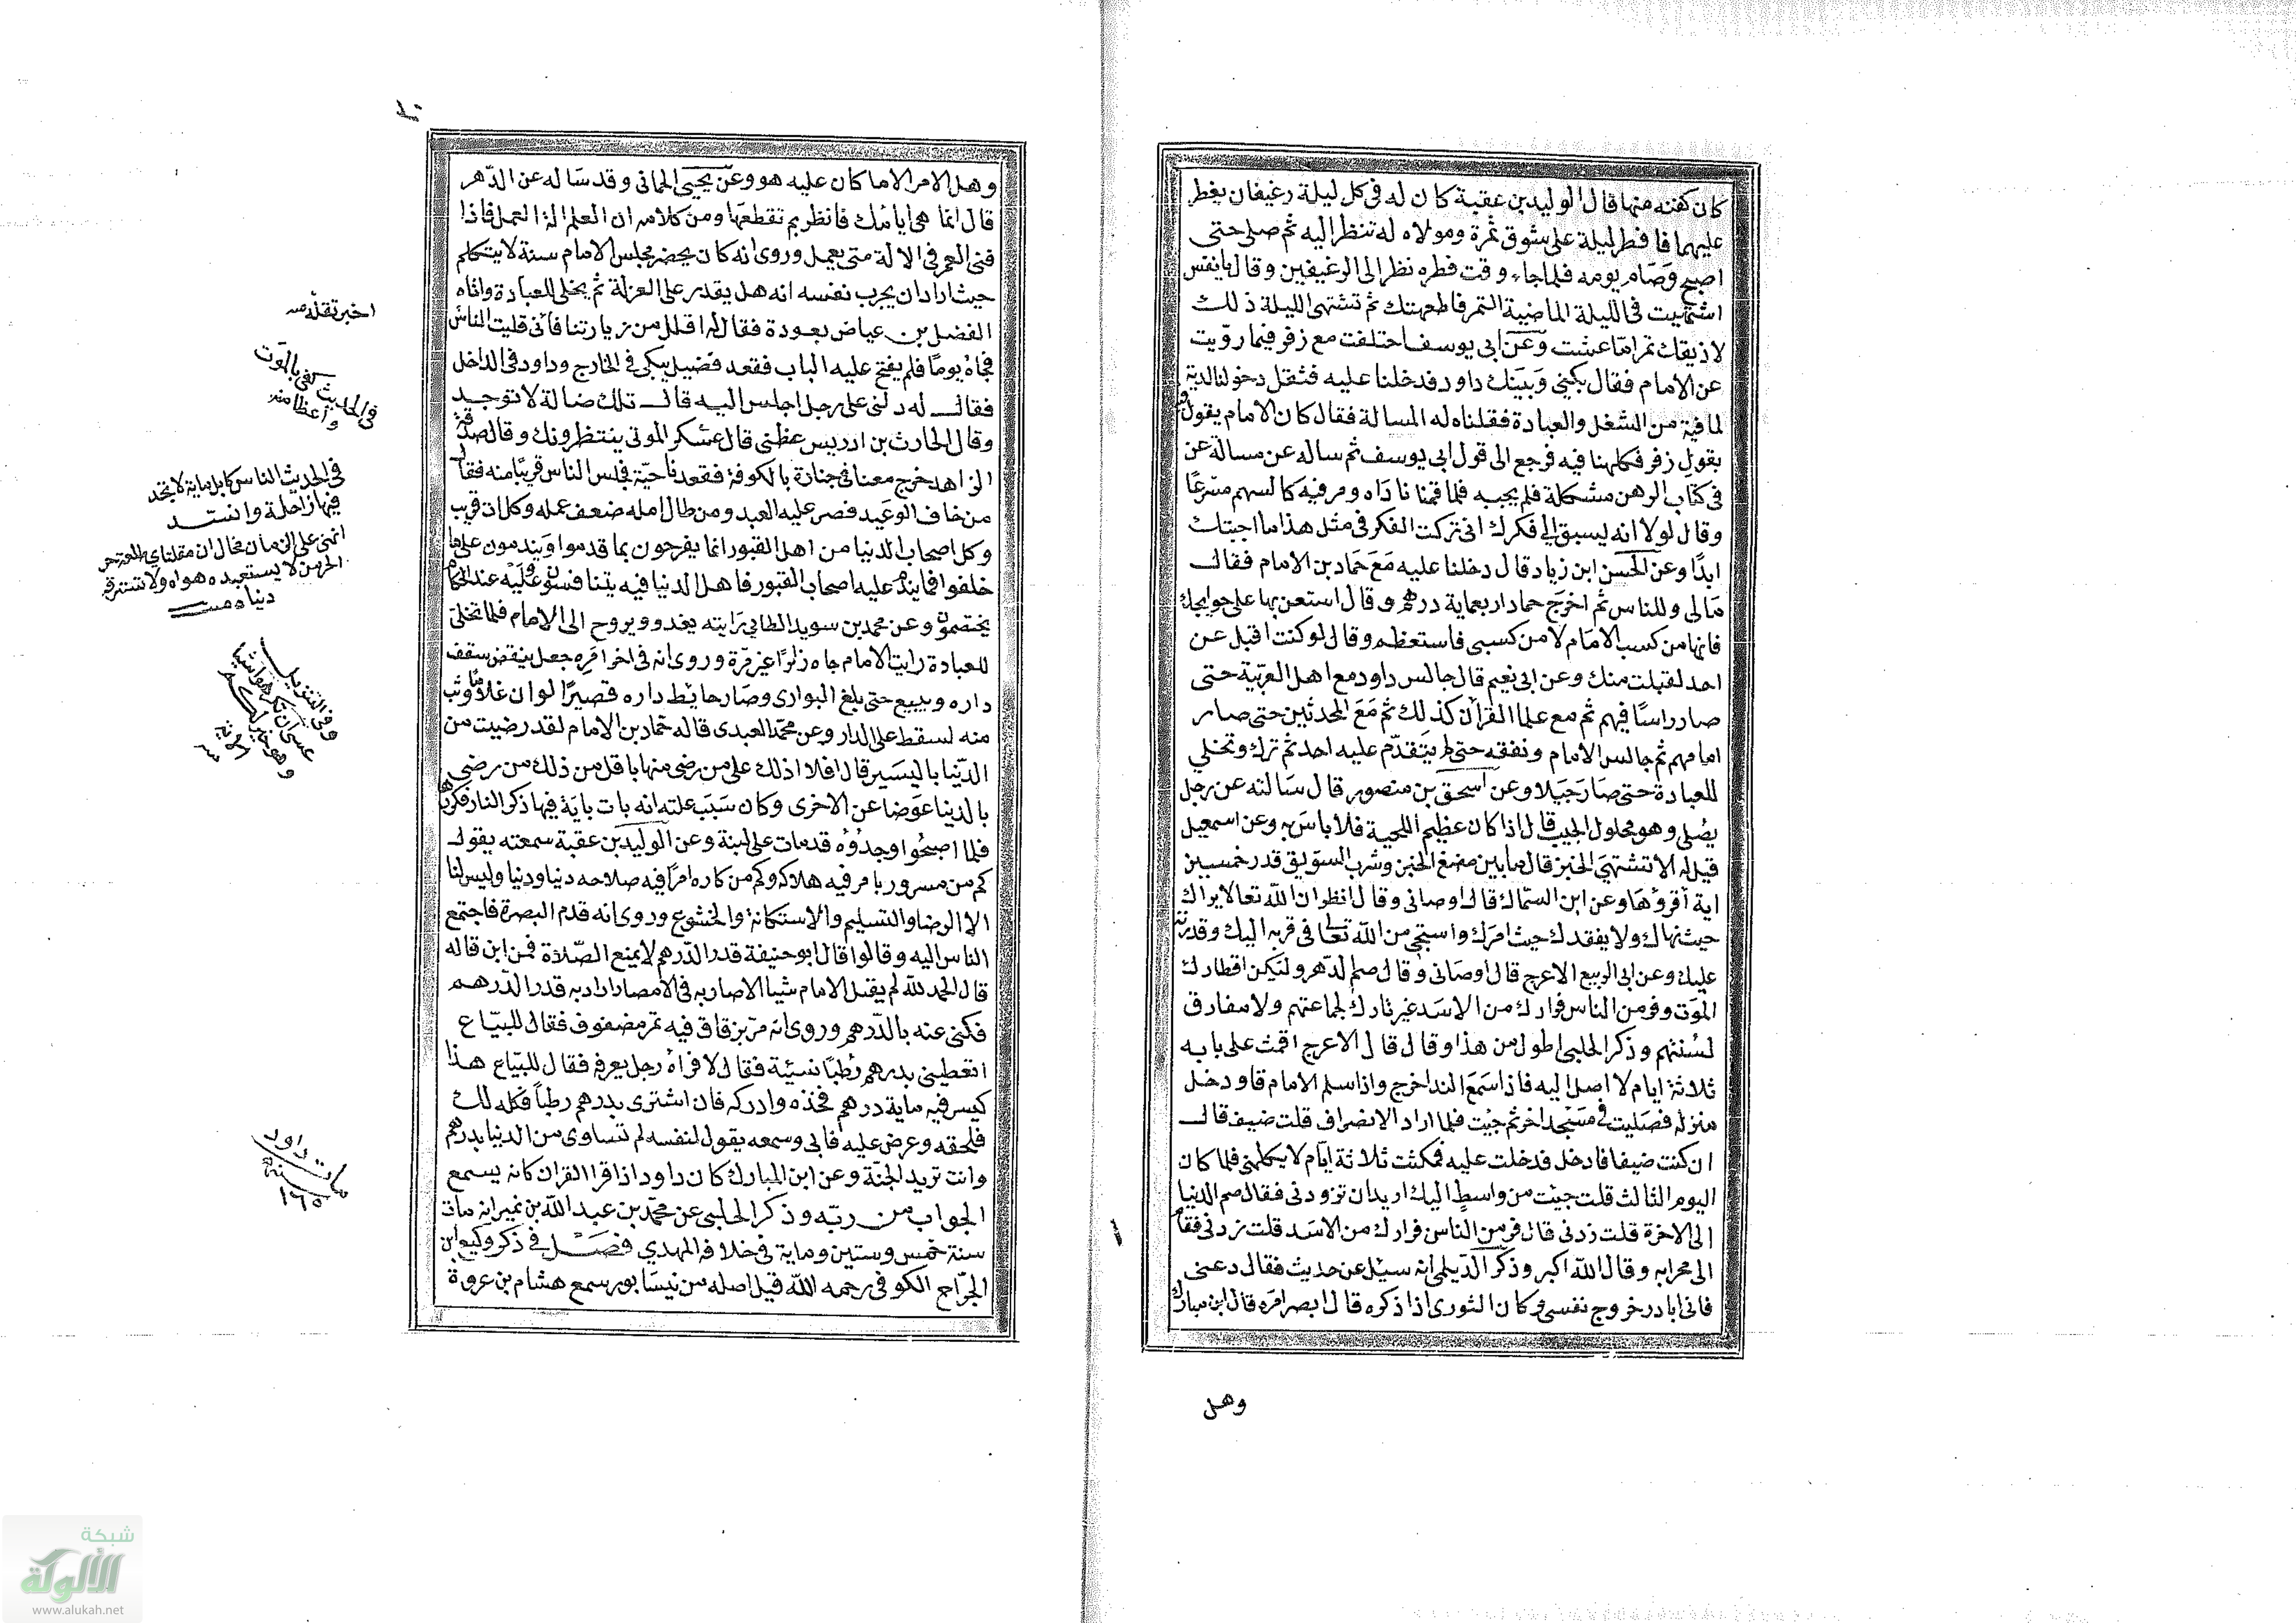 كان كفنه منها قال الوليد بن عقبة كان له في كل ليلة رغيفان يفطر
عليهما فافطر ليلة على شوق تمرة ومولاه له تنظر اليه ثم صلى حتى
اصبح وصام يومه فلما جاء وقت فطره نظر الى الرغيفين وقال يا نفس
اشتهيت في الليلة الماضية التمر فاطعمتك ثم تشتهى الليلة ذلك
لا ذيقك تمرا ما عشت وعن ابى يوسف اختلفت مع زفر فيما رويت
عن الامام فقال بينى وبينك داود فدخلنا عليه فثقل دخولنا لديه
لما فيه من الشغل والعبادة فقلنا له المسالة فقال كان الامام يقول
بقول زفر فكلمنا فيه فرجع الى قول ابى يوسف ثم ساله عن مسالة عن
فى كتاب الرهن مشكلة فلم يجبه فلما قمنا ناداه ومر فيه كالسهم مسرعا
وقال لولا انه يسبق الى فكرك انى تركت الفكر فى مثل هذا ما اجبتك
ابدا وعن الحسن ابن زياد قال دخلنا عليه مع حماد بن الامام فقال
مالى وللناس ثم اخرج حماد اربعماية درهم وقال استعن بها على حوايجك
فانها من كسب الامام لا من كسبى فاستعظمه وقال لو كنت اقبل عن
احد لقبلت منك وعن ابى نعيم قال جالس داود مع اهل العربية حتى
صار راسا فيهم ثم مع علما القران كذلك ثم مع المحدثين حتى صار
امامهم ثم جالس الامام وتفقه حتى لم يتقدم عليه احد ثم ترك وتخلي
للعبادة حتى صار جبلا وعن اسحق بن منصور قال سالته عن رجل
يصلى وهو محلول الجيب قال اذا كان عظيم اللحية فلا باس به وعن اسمعيل
قيل له الا تشتهي الخبز قال ما بين مضغ الخبز وشرب السويق قدر خمسين
اية أقرؤها وعن ابن السماك قال اوصانى وقال انظر ان الله تعالا يراك
حيث نهاك ولا يفقدك حيث امرك واستحى من الله تعالى فى قربه اليك وقدرته
عليك وعن ابى الربيع الاعرج قال اوصانى وقال صم الدهر ولتكن افطارك
الموت وفر من الناس فرارك من الاسد غير تارك لجماعتهم ولا مفارق
لسنتهم وذكر الحلبى اطول من هذا وقال قال الاعرج اقمت على بابه
ثلاثة ايام لا اصل اليه فاذا سمع الندا خرج واذا سلم الامام قا ودخل
منزله فصليت فى مسجد اخر ثم جيت فلما اراد الانصراف قلت ضيف قال
ان كنت ضيفا فادخل فدخلت عليه فمكثت ثلاثة ايام لا يكلمنى فلما كان
اليوم الثالث قلت جيت من واسط اليك اريد ان تزودنى فقال صم الدنيا
الى الاخرة قلت زدنى قال فر من الناس فرارك من الاسد قلت زدنى فقام
الى محرابه وقال الله اكبر وذكر الديلمى انه سئل عن حديث فقال دعنى
فانى ابادر خروج نفسى وكان الثورى اذا ذكره قال ابصر امره قال ابن مبارك
وهل
وهل الامر الا ما كان عليه هو وعن يحيى الحمانى وقد ساله عن الدهر
قال انما هى ايامك فانظر بم تقطعها ومن كلامه ان العلم الة العمل فاذا
فنى العمر فى الالة متى يعمل وروى انه كان يحضر مجلس الامام سنة لا يتكلم
حيث اراد ان يجرب نفسه انه هل يقدر على العزلة ثم يخلى للعبادة واتاه
الفضل بن عياض يعودة فقال له اقلل من زيارتنا فانى قليت الناس
فجاه يوما فلم يفتح عليه الباب فقعد فضيل يبكى فى الخارج وداود فى الداخل
فقال له دلنى على رجل اجلس اليه قال تلك ضالة لا توجد
وقال الحارث بن ادريس عظنى قال عسكر الموتى ينتظرونك وقال صدقة
الزاهد خرج معنا فى جنازة بالكوفة فقعد ناحية فجلس الناس قريبا منه فقال
من خاف الوعيد قصر عليه البعيد ومن طال امله ضعف عمله وكل ات قريب
وكل اصحاب الدنيا من اهل القبور انما يفرحون بما قدموا ويندمون على ما
خلفوا فما يندم عليه اصحاب القبور فاهل الدنيا فيه يتنافسون وعليه عند الحكام
يختصمون وعن محمد بن سويد الطايى رايته يغدو ويروح الى الامام فلما تخلى
للعبادة رايت الامام جاه زائرا غير مرة وروى انه فى اخر امره جعل ينقض سقف
داره ويبيع حتى بلغ البوارى وصار حايط داره قصيرا لو ان غلاما وثب
منه لسقط على الدار وعن محمد العبدى قال له حماد بن الامام لقد رضيت من
الدنيا باليسير قال افلا ادلك على من رضى منها باقل من ذلك من رضى
بالدنيا عوضا عن الاخرى وكان سبب علته انه بات باية فيها ذكر النار فكررها
فلما اصبحوا وجدوه قد مات على لبنة وعن الوليد بن عقبة سمعته يقول
كم من مسرور بامر فيه هلاكه وكم من كاره امرا فيه صلاحه دنيا ودنيا وليس لنا
الا الرضا والتسليم والاستكانة والخشوع وروى انه قدم البصرة فاجتمع
الناس اليه وقالوا قال ابو حنيفة قدر الدرهم لا يمنع الصلاة فمن اين قاله
قال الحمد لله لم يقبل الامام شيا الا صار به فى الامصار اراد به قدر الدرهم
فكنى عنه بالدرهم وروى انه مر بزقاق فيه تمر مصفوف فقال للبياع
اتعطينى بدرهم رطبا نسيئة فقال لا فراه رجل يعرفه فقال للبياع هذا
كيس فيه ماية درهم فخذه وادركه فان اشترى بدرهم رطبا فكله لك
فلحقه وعرض عليه فابى وسمعه يقول لنفسه لم تساوى من الدنيا بدرهم
وانت تريد الجنة وعن ابن المبارك كان داود اذا قرا القران كانه يسمع
الجواب من ربه وذكر الحلبى عن محمد بن عبد الله بن نمير انه مات
سنة خمس وستين وماية فى خلافه المهدي فصل فى ذكر وكيع ابن
الجراح الكوفى رحمه الله قيل اصله من نيسابور سمع هشام بن عروة
اخبر تقله
فى الحديث كفى بالموت
واعظا منه
فى الحديث الناس كابل ماية لا تجد
فيها راحلة وانشد
الحر من لا يستعبده هواه ولا تسترقه
دنياه
وفى التنزيل
عسى ان تكرهوا شيا
وهو خير لكم
الاية
مات داود
سنة
١٦٥
شبكة
الألوكة
www.alukah.net